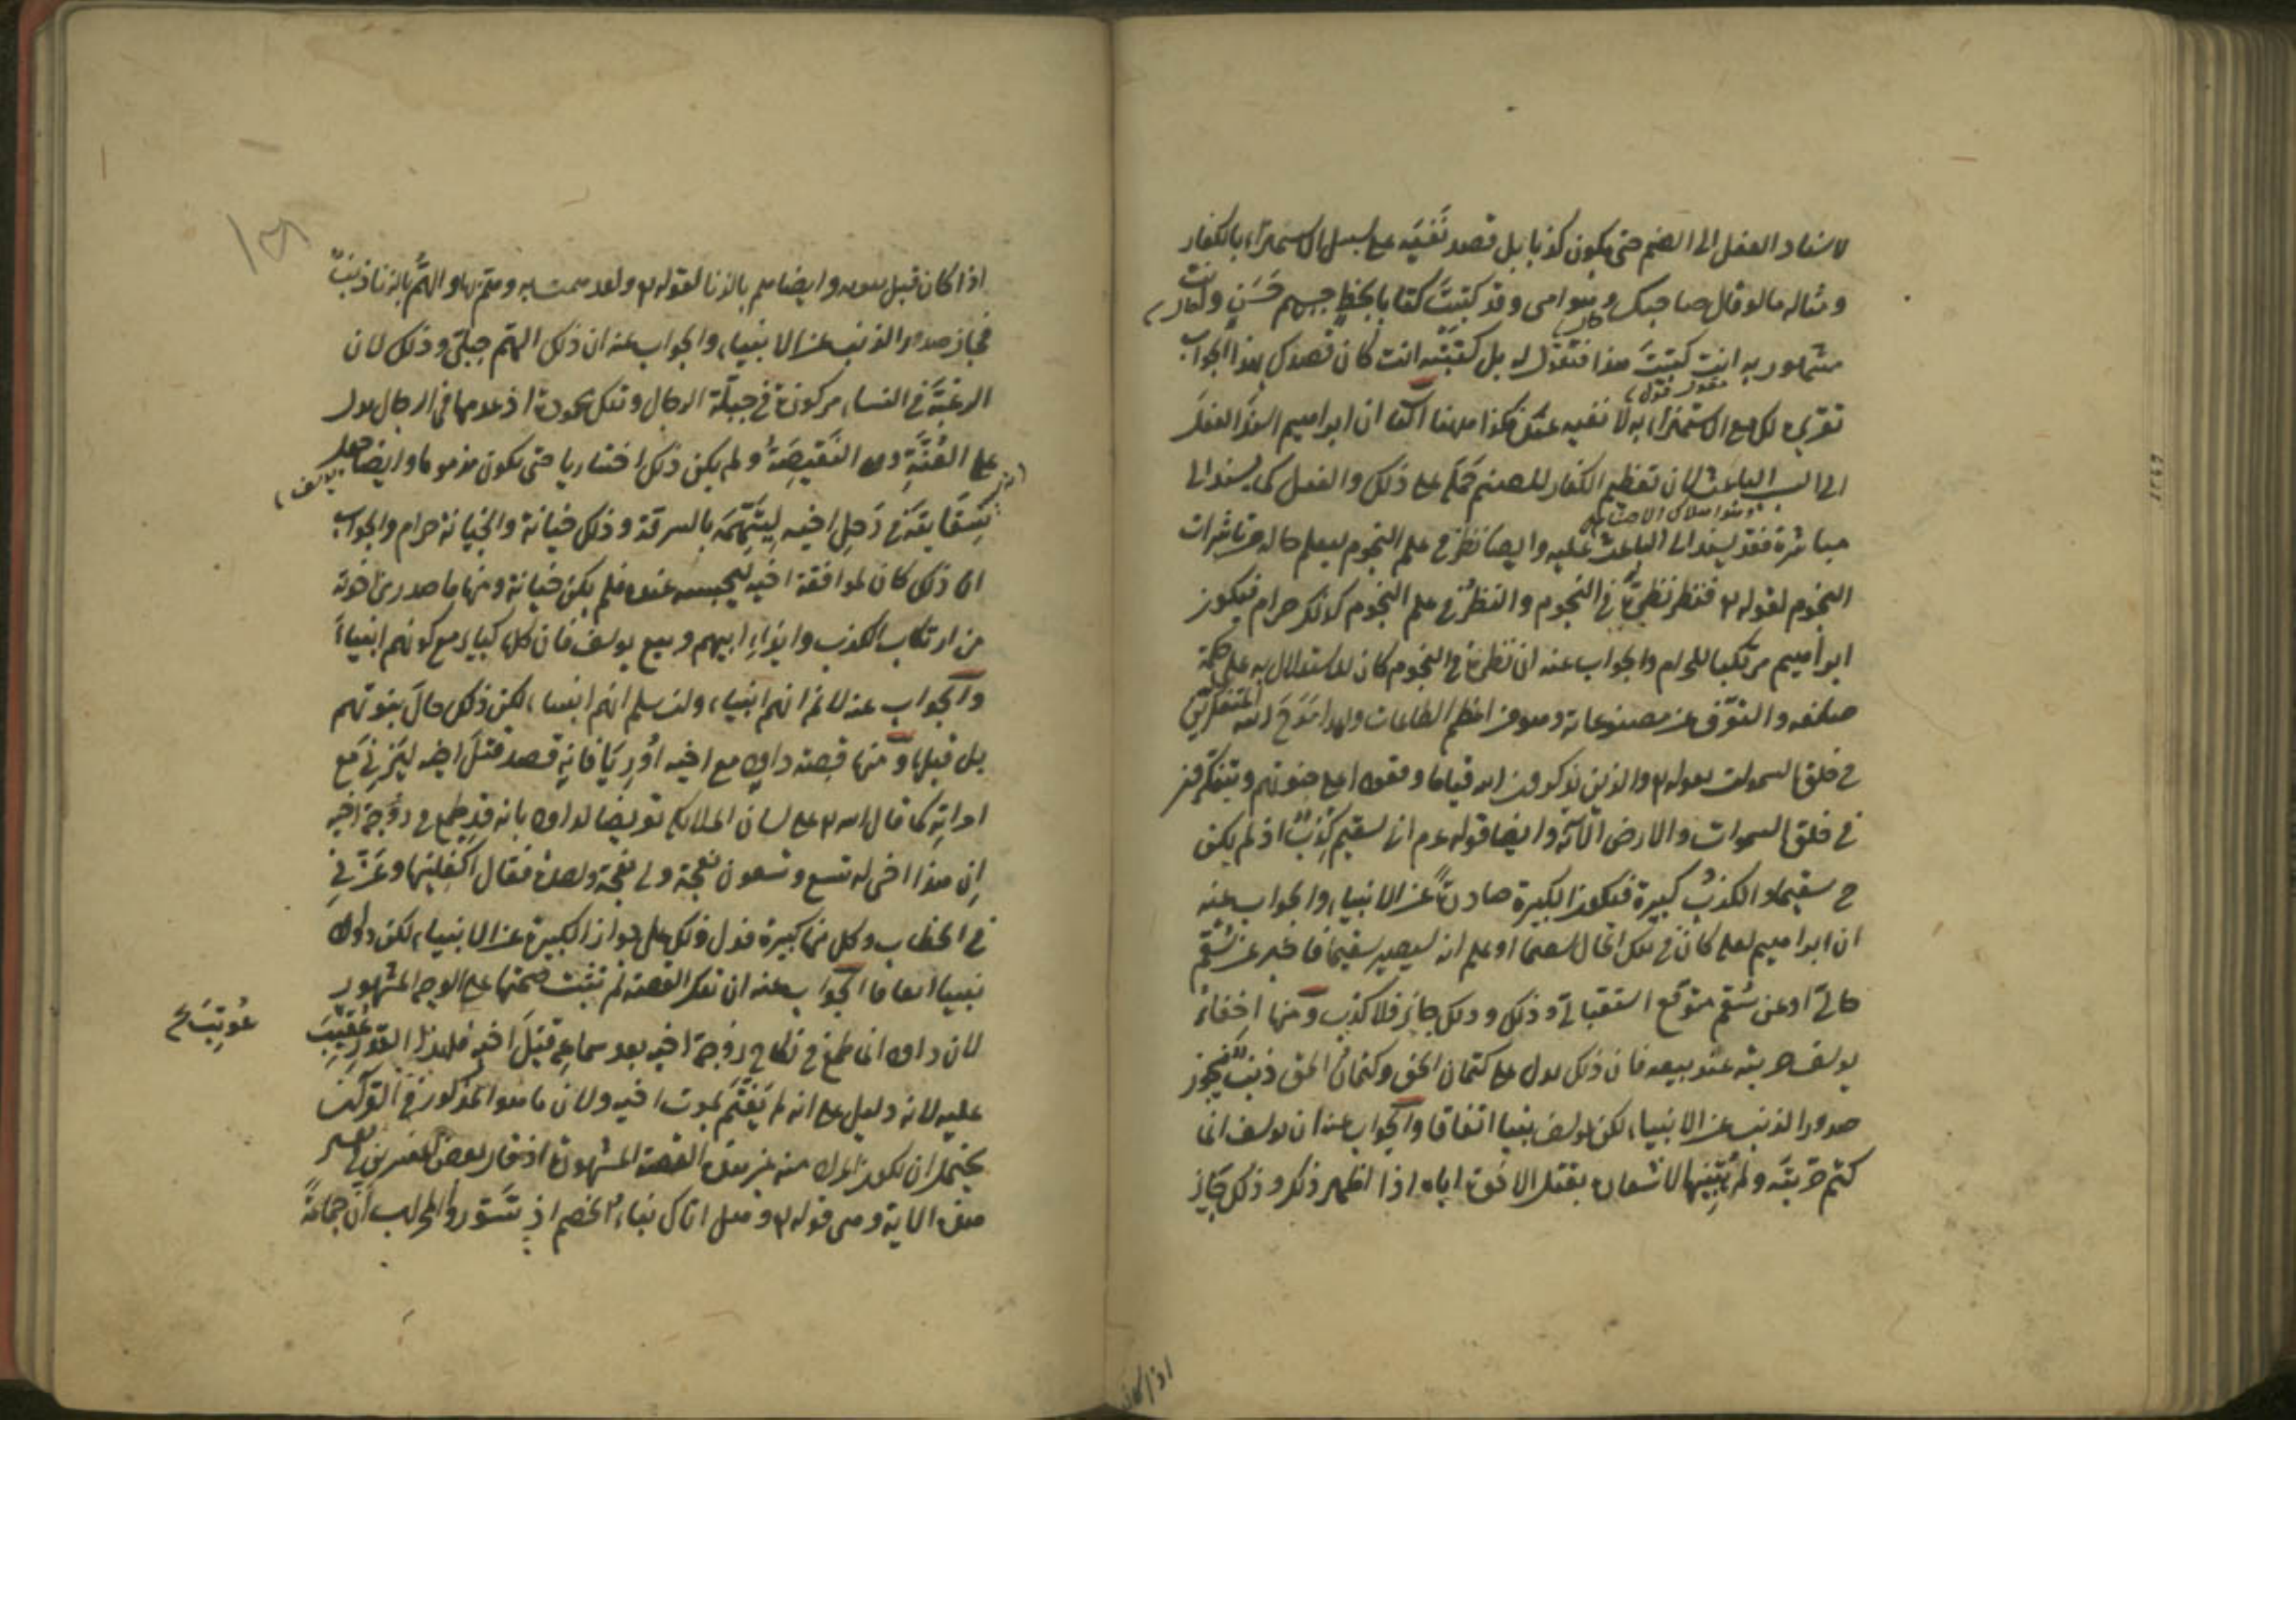 لاسناد الفعل الى الصنم حتى يكون كذبا بل قصد نفيه على سبيل الاستهزاء بالكفار
ومثاله ما لو قال صاحبك وهو امى وقد كتبت كتابا بخط حسن وانت
مشهور به انت كتبت هذا فتقول له بل كتبته انت كان قصدك بهذا الجواب
تقريره لك مع الاستهزاء به لا نفيه عنك فكذا ههنا ان ابراهيم اسند الفعل
الى السبب الباعث لان تعظيم الكفار للصنم حمله على ذلك والفعل كما يسند الى
مباشره فقد يسند الى الباعث عليه وايضا نظر فى علم النجوم ليعلم حاله من تاثيرات
النجوم لقوله تع فنظر نظرة فى النجوم والنظر فى علم النجوم كذلك حرام فيكون
ابراهيم مرتكبا للحرام والجواب عنه ان نظره فى النجوم كان للاستدلال به على حكمة
صانعه والتعرف عن مصنوعاته وهو من اعظم الطاعات ولهذا مدح الله المتفكرين
فى خلق السموات بقوله تع والذين يذكرون الله قياما وقعودا وعلى جنوبهم ويتفكرون
فى خلق السموات والارض الآية وايضا قوله عم انى سقيم كذب اذ لم يكن
ح سقيما والكذب كبيرة فتكون الكبيرة صادرة عن الانبياء والجواب عنه
ان ابراهيم لعله كان فى تلك الحال سقيما او علم انه سيصير سقيما فاخبر عن سقم
حالى او عن سقم متوقع استقبالى وذلك جائز فلا كذب ومنها اخفاء
يوسف حريته عند بيعه فان ذلك يدل على كتمان الحق وكتمان الحق ذنب فيجوز
صدور الذنب عن الانبياء لكون يوسف نبيا اتفاقا والجواب عنه ان يوسف انما
كتم حريته ولم يبينها لاشعاره بقتل الاخوة اياه اذا اظهر ذلك وذلك جائز
اذا كان
اذا كان قبل نبوته وايضا هم بالزنا لقوله تع ولقد همت به وهم بها والهم بالزنا ذنب
فجاز صدور الذنب عن الانبياء والجواب عنه ان ذلك الهم جبلى وذلك لان
الرغبة فى النساء مركوزة فى جبلة الرجال وتلك محمودة اذ عدمها فى الرجال يدل
على العنة وهى النقيصة ولم يكن ذلك اختياريا حتى يكون مذموما وايضا جعل يوسف
سقايته فى رحل اخيه ليتهمه بالسرقة وذلك خيانة والخيانة حرام والجواب
ان ذلك كان لموافقة اخيه ليحبسه عنده فلم يكن خيانة ومنها ما صدر من اخوته
من ارتكاب الكذب وايذاء ابيهم وبيع يوسف فان كلها كبائر مع كونهم انبياء
والجواب عنه لا نم انهم انبياء ولئن سلم انهم انبياء لكن ذلك حال نبوتهم
بل قبلها ومنها قصة داود مع اخيه اوريا فانه قصد قتل اخيه ليتزوج
امراته كما قال الله تع على لسان الملائكة تعريضا لداود بانه قد طمع فى زوجة اخيه
ان هذا اخى له تسع وتسعون نعجة ولى نعجة واحدة فقال اكفلنيها وعزنى
فى الخطاب وكل منها كبيرة فدل ذلك على جواز الكبيرة عن الانبياء لكون داود
نبيا اتفاقا الجواب عنه ان تلك القصة لم تثبت صحتها على الوجه المشهور
لان داود انما طمع فى نكاح زوجة اخيه بعد سماعه قتل اخيه فلهذا القدر عوتب
عوتب
عليه لانه دليل على انه لم يغتم بموت اخيه ولان ما هو المذكور فى القرآن
يحتمل ان يكون المراد منه غير هذه القصة المشهورة اذ قال بعض المفسرين فى تفسير
هذه الآية وهى قوله تع وهل اتاك نبأ الخصم اذ تسوروا المحراب ان جماعة